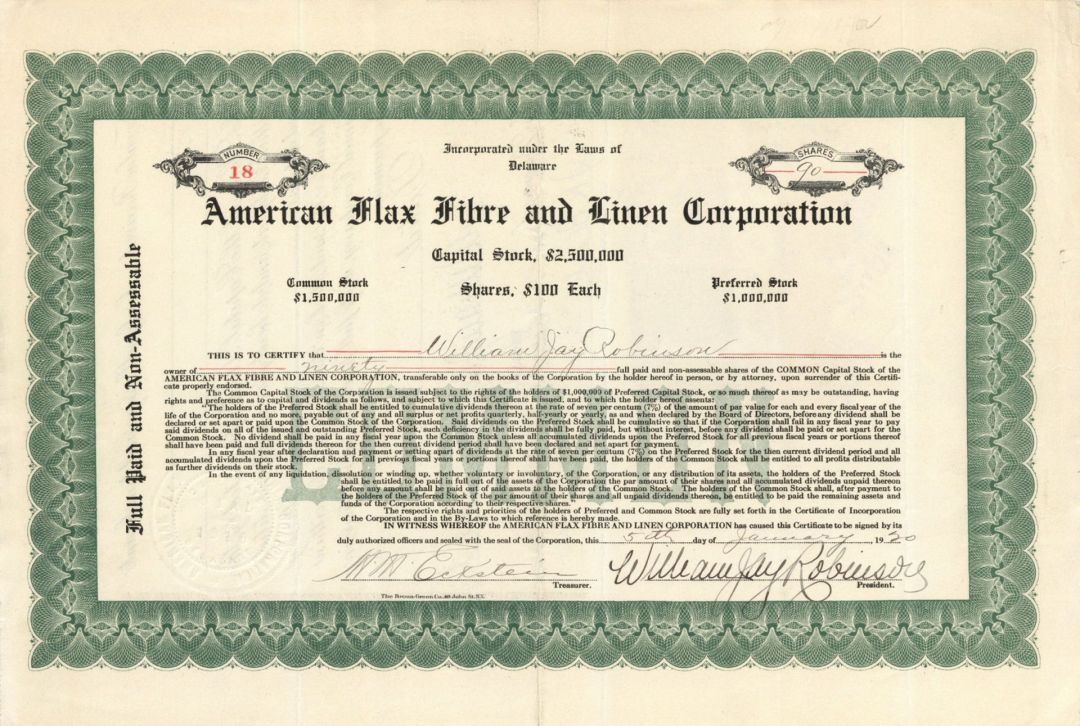 Incorporated under the Laws of
Delaware
NUMBER
18
SHARES
90
American Flax Fibre and Linen Corporation
Capital Stock, $2,500,000
Common Stock
$1,500,000
Shares, $100 Each
Preferred Stock
$1,000,000
Full Paid and Non-Assessable
THIS IS TO CERTIFY that William Jay Robinson is the
owner of ninety full paid and non-assessable shares of the COMMON Capital Stock of the
AMERICAN FLAX FIBRE AND LINEN CORPORATION, transferable only on the books of the Corporation by the holder hereof in person, or by attorney, upon surrender of this Certifi-
cate properly endorsed.
The Common Capital Stock of the Corporation is issued subject to the rights of the holders of $1,000,000 of Preferred Capital Stock, or so much thereof as may be outstanding, having
rights and preference as to capital and dividends as follows, and subject to which this Certificate is issued, and to which the holder hereof assents:
The holders of the Preferred Stock shall be entitled to cumulative dividends thereon at the rate of seven per centum (7%) of the amount of par value for each and every fiscal year of the
life of the Corporation and no more, payable out of any and all surplus or net profits quarterly, half-yearly or yearly, as and when declared by the Board of Directors, before any dividend shall be
declared or set apart or paid upon the Common Stock of the Corporation. Said dividends on the Preferred Stock shall be cumulative so that if the Corporation shall fail in any fiscal year to pay
said dividends on all of the issued and outstanding Preferred Stock, such deficiency in the dividends shall be fully paid, but without interest, before any dividend shall be paid or set apart for the
Common Stock. No dividend shall be paid in any fiscal year upon the Common Stock unless all accumulated dividends upon the Preferred Stock for all previous fiscal years or portions thereof
shall have been paid and full dividends thereon for the then current dividend period shall have been declared and set apart for payment.
In any fiscal year after declaration and payment or setting apart of dividends at the rate of seven per centum (7%) on the Preferred Stock for the then current dividend period and all
accumulated dividends upon the Preferred Stock for all previous fiscal years or portions thereof shall have been paid, the holders of the Common Stock shall be entitled to all profits distributable
as further dividends on their stock.
In the event of any liquidation, dissolution or winding up, whether voluntary or involuntary, of the Corporation, or any distribution of its assets, the holders of the Preferred Stock
shall be entitled to be paid in full out of the assets of the Corporation the par amount of their shares and all accumulated dividends unpaid thereon
before any amount shall be paid out of said assets to the holders of the Common Stock. The holders of the Common Stock shall, after payment to
the holders of the Preferred Stock of the par amount of their shares and all unpaid dividends thereon, be entitled to be paid the remaining assets and
funds of the Corporation according to their respective shares.
The respective rights and priorities of the holders of Preferred and Common Stock are fully set forth in the Certificate of Incorporation
of the Corporation and in the By-Laws to which reference is hereby made.
IN WITNESS WHEREOF the AMERICAN FLAX FIBRE AND LINEN CORPORATION has caused this Certificate to be signed by its
duly authorized officers and sealed with the seal of the Corporation, this 5th day of January, 1920
Eckstein
Treasurer.
William Jay Robinson
President.
The Brown-Green Co. 40 John St. N.Y.